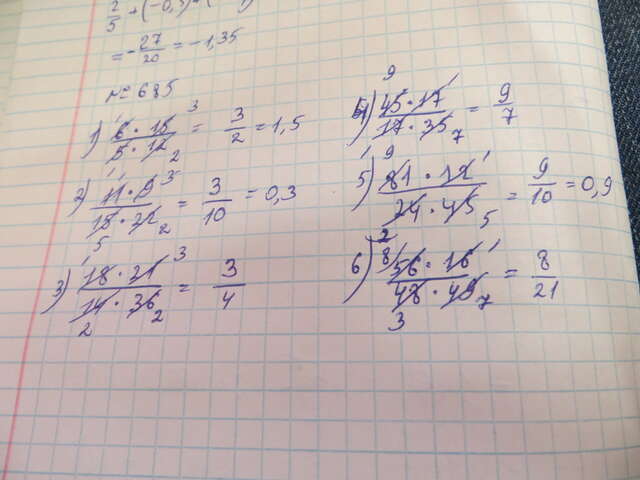 2/5 + (-0,
= -27/20 = -1,35
№ 685
1) 6 · 15 / 5 · 12 = 3/2 = 1,5
2) 11 · 9 / 15 · 22 = 3/10 = 0,3
3) 18 · 21 / 14 · 36 = 3/4
4) 45 · 17 / 17 · 35 = 9/7
5) 81 · 12 / 24 · 45 = 9/10 = 0,9
6) 56 · 16 / 48 · 49 = 8/21